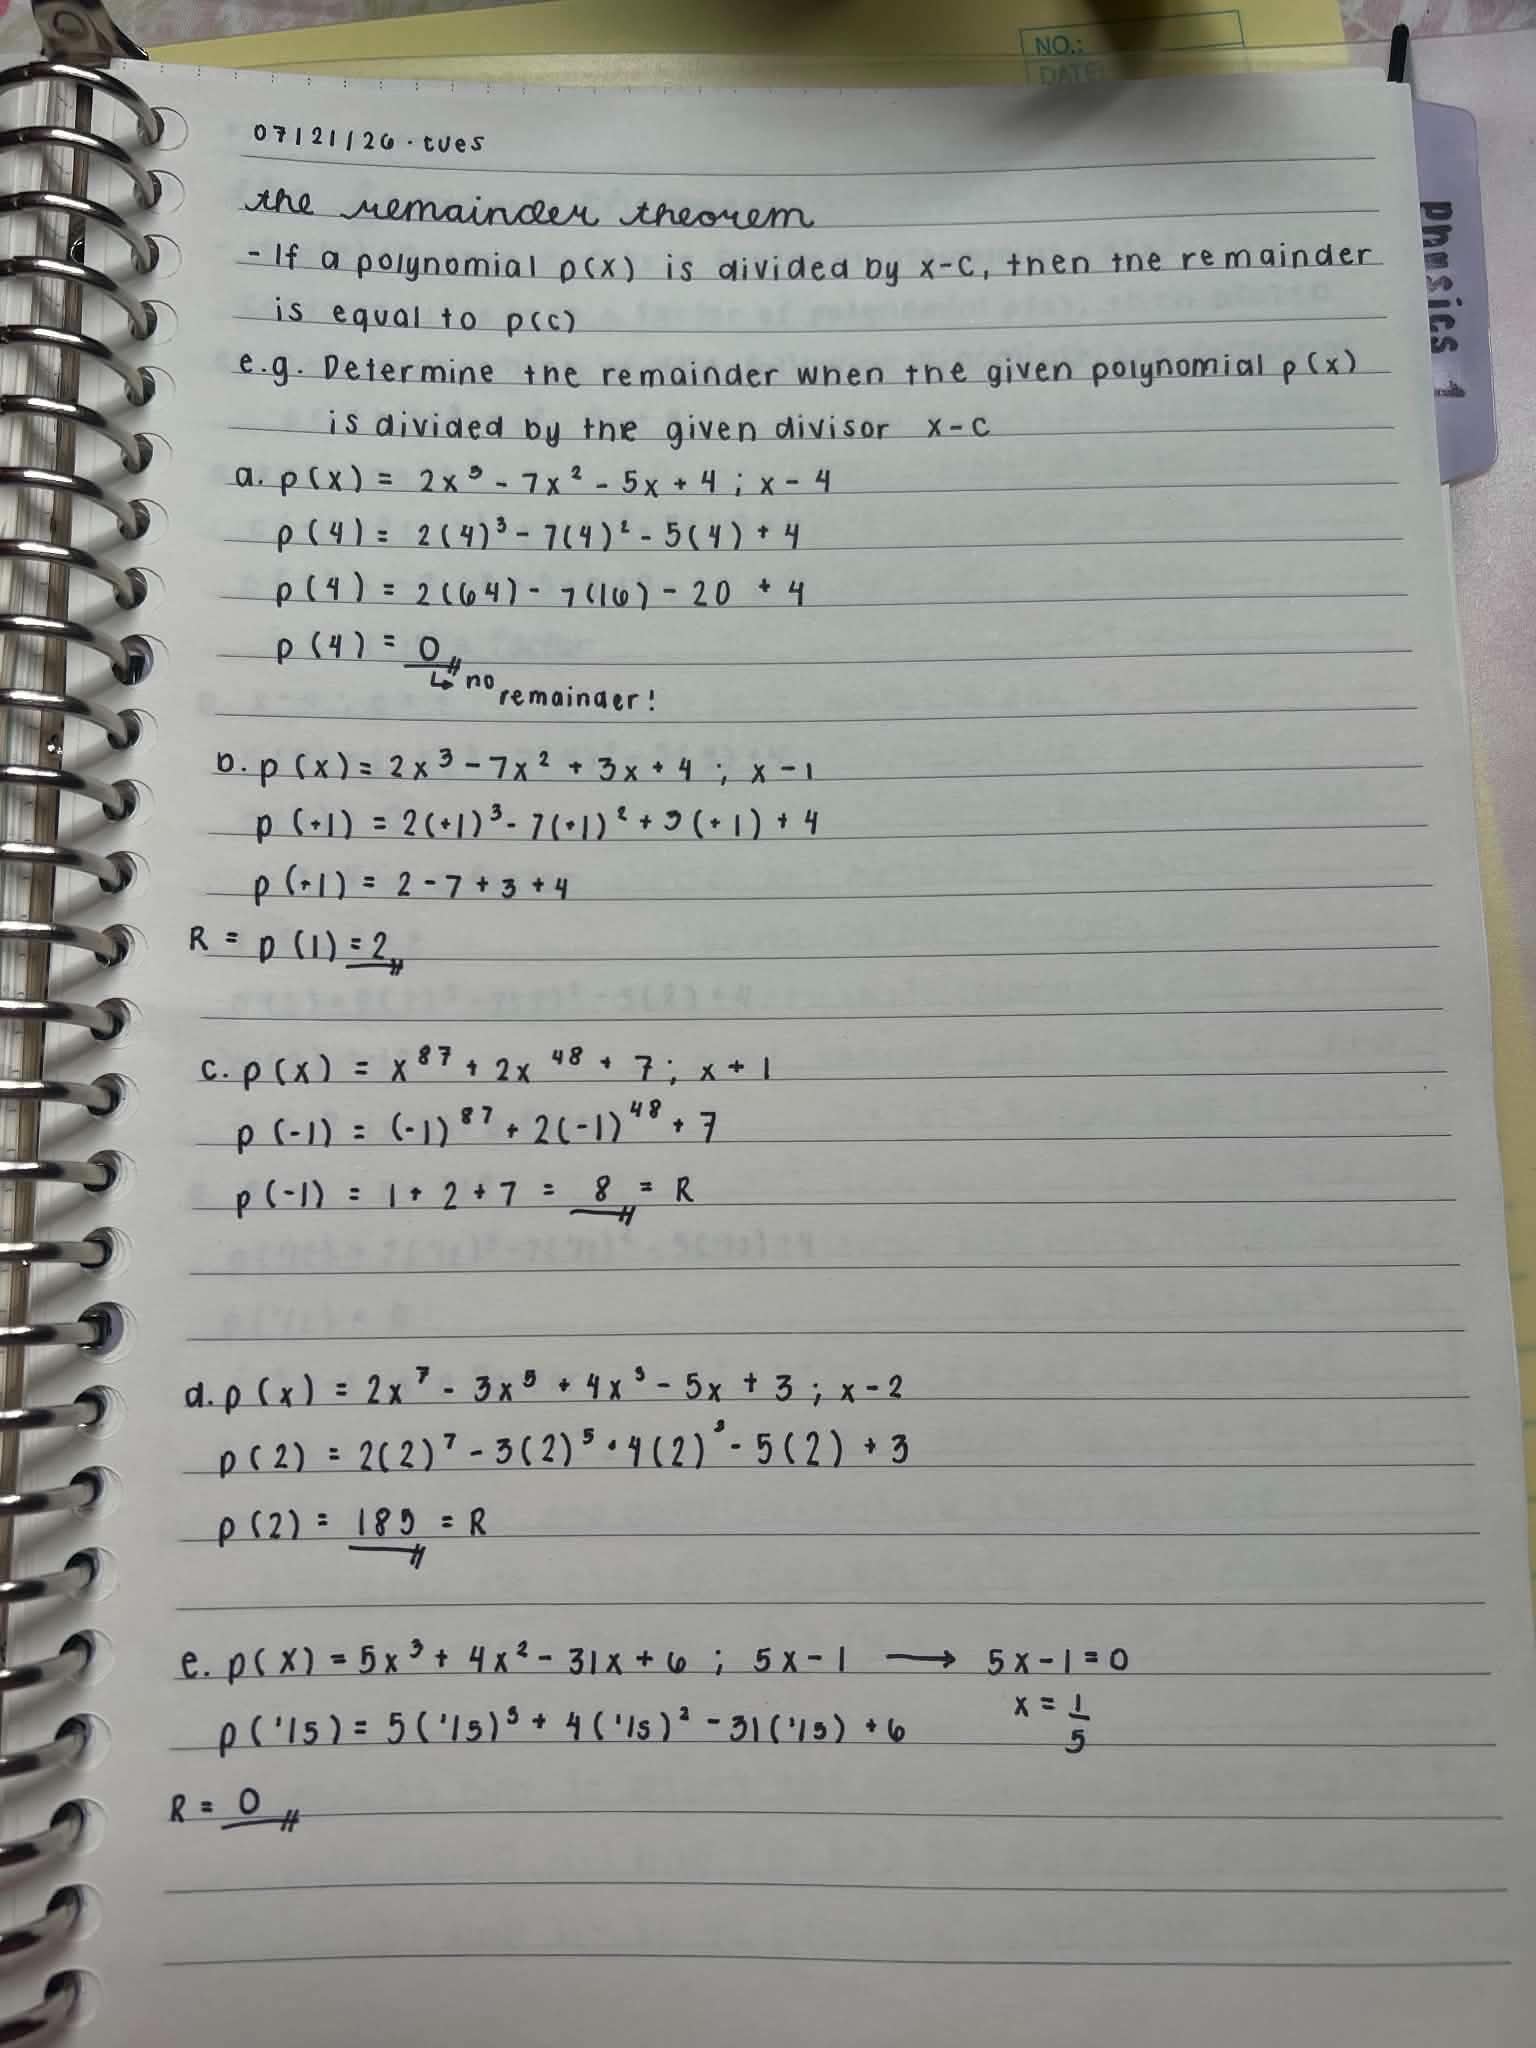 NO.:
DATE:
07/21/26 · tues
the remainder theorem
- If a polynomial p(x) is divided by x-c, then the remainder
is equal to p(c)
e.g. Determine the remainder when the given polynomial p(x)
is divided by the given divisor x-c
a. p(x) = 2x³ - 7x² - 5x + 4 ; x - 4
p(4) = 2(4)³ - 7(4)² - 5(4) + 4
p(4) = 2(64) - 7(16) - 20 + 4
p(4) = 0
↳ no remainder!
b. p(x) = 2x³ - 7x² + 3x + 4 ; x - 1
p(+1) = 2(+1)³ - 7(+1)² + 3(+1) + 4
p(+1) = 2 - 7 + 3 + 4
R = p(1) = 2
c. p(x) = x⁸⁷ + 2x⁴⁸ + 7 ; x + 1
p(-1) = (-1)⁸⁷ + 2(-1)⁴⁸ + 7
p(-1) = 1 + 2 + 7 = 8 = R
d. p(x) = 2x⁷ - 3x⁵ + 4x³ - 5x + 3 ; x - 2
p(2) = 2(2)⁷ - 3(2)⁵ + 4(2)³ - 5(2) + 3
p(2) = 189 = R
e. p(x) = 5x³ + 4x² - 31x + 6 ; 5x - 1 → 5x - 1 = 0
x = 1/5
p(1/5) = 5(1/5)³ + 4(1/5)² - 31(1/5) + 6
R = 0
physics 1